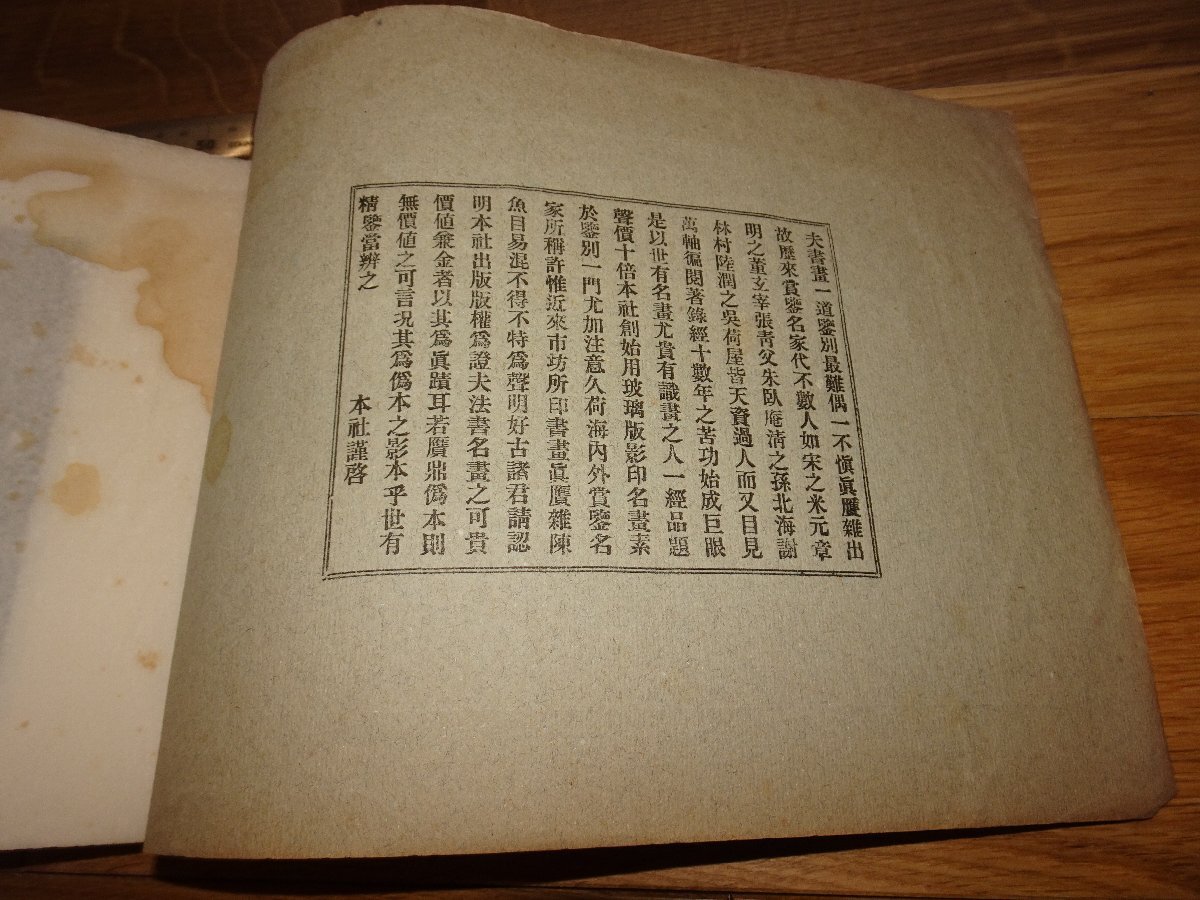 夫書畫一道鑒別最難偶一不愼眞贋雜出
故歷來賞鑒名家代不數人如宋之米元章
明之董玄宰張靑父朱臥庵淸之孫北海謝
林村陸潤之吳荷屋皆天資過人而又目見
萬軸徧閱著錄經十數年之苦功始成巨眼
是以世有名畫尤貴有識畫之人一經品題
聲價十倍本社創始用玻璃版影印名畫素
於鑒別一門尤加注意久荷海內外賞鑒名
家所稱許惟近來市坊所印書畫眞贋雜陳
魚目易混不得不特爲聲明好古諸君請認
明本社出版版權爲證夫法書名畫之可貴
價値兼金者以其爲眞蹟耳若贋鼎僞本則
無價値之可言况其爲僞本之影本乎世有
精鑒當辨之
本社謹啓